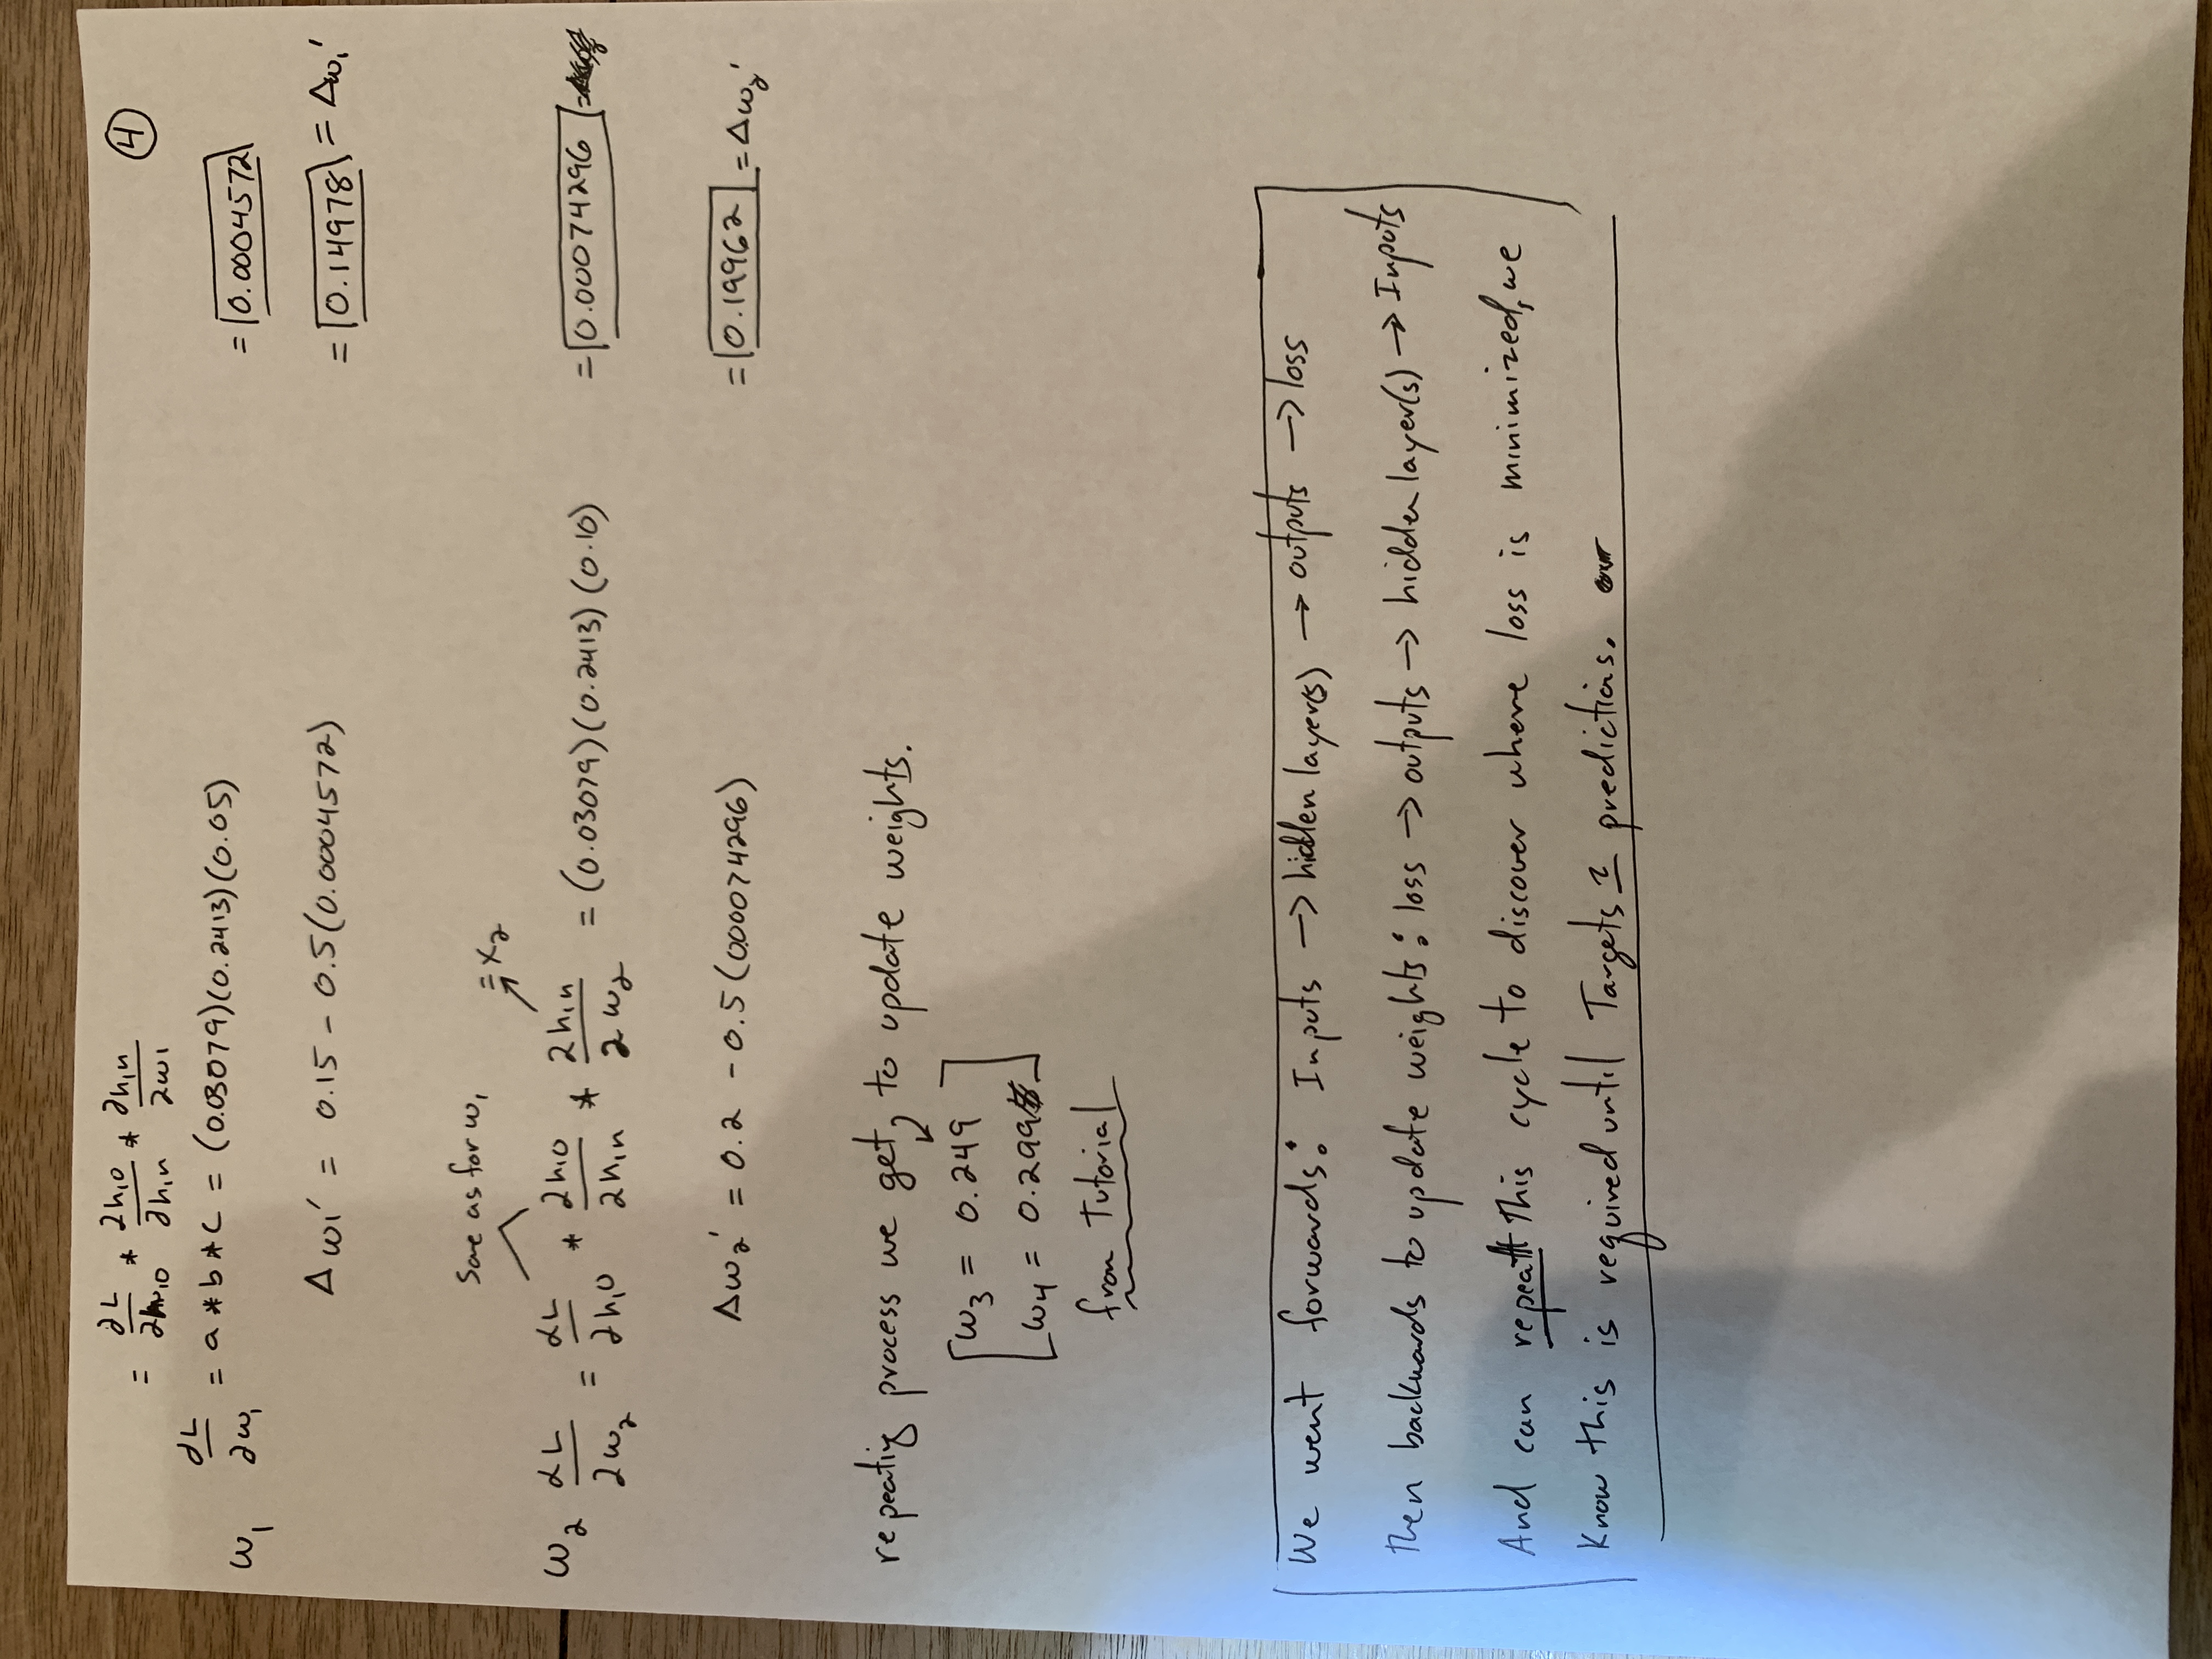 ④
= ∂L/∂h₁o * ∂h₁o/∂h₁n * ∂h₁n/∂w1
w₁ ∂L/∂w₁ = a * b * c = (0.03079)(0.2413)(0.05) = 0.0004572
Δw1' = 0.15 - 0.5(0.0004572) = 0.14978 = Δw₁'
Same as for w₁
= x₂
w₂ ∂L/∂w₂ = ∂L/∂h₁o * ∂h₁o/∂h₁n * ∂h₁n/∂w₂ = (0.03079)(0.2413)(0.10) = 0.00074296
Δw₂' = 0.2 - 0.5(0.00074296) = 0.19962 = Δw₂'
repeating process we get, to update weights.
w₃ = 0.249
w₄ = 0.299
from Tutorial
We went forwards: Inputs → hidden layer(s) → outputs → loss
Then backwards to update weights: loss → outputs → hidden layer(s) → Inputs
And can repeat this cycle to discover where loss is minimized, we
Know this is required until Targets ≈ predictions.